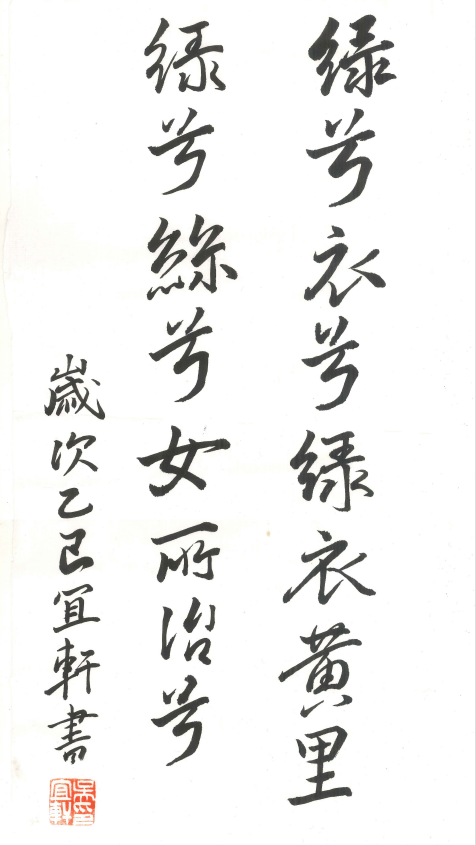 綠兮衣兮綠衣黃里
綠兮絲兮女所治兮
歲次乙巳宜軒書